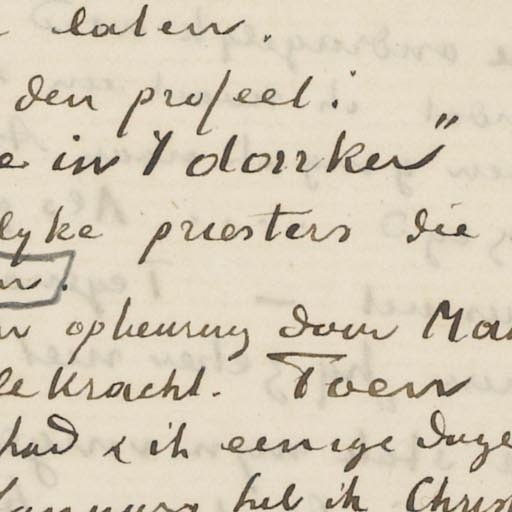 laten.
den profeet:
in 't donker"
lyke priesters die
n.
opbeuring door Ma
le kracht. Toen
had & ik eenige dage
heb ik Chris